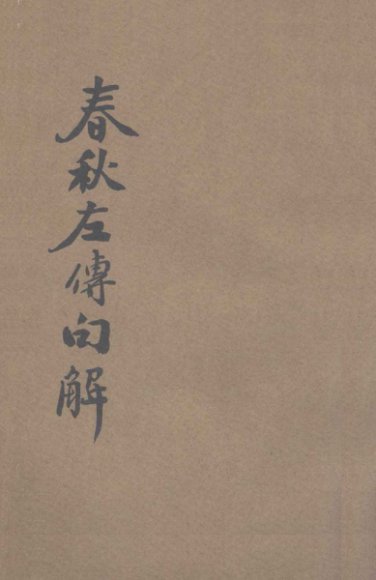 春秋左傳句解